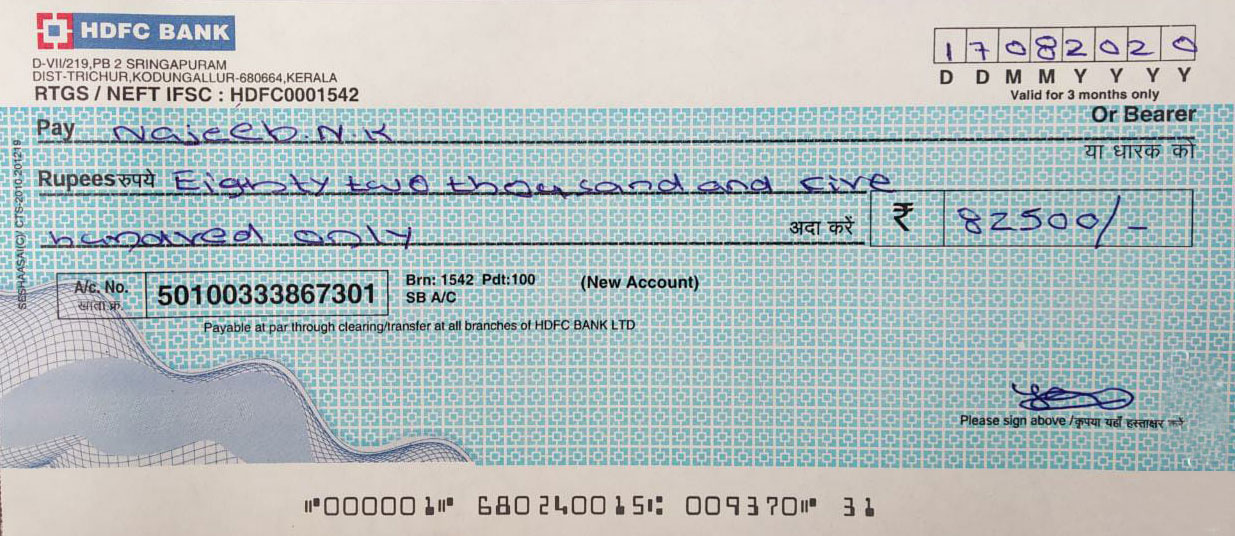 HDFC BANK
D-VII/219,PB 2 SRINGAPURAM
DIST-TRICHUR,KODUNGALLUR-680664,KERALA
RTGS / NEFT IFSC : HDFC0001542
17082020
D D M M Y Y Y Y
Valid for 3 months only
Pay Najeeb.N.K Or Bearer
या धारक को
Rupees रुपये Eighty two thousand and five
hundred only अदा करें ₹ 82500/-
A/c. No. 50100333867301
खाता क्र.
Brn: 1542 Pdt:100 (New Account)
SB A/C
Payable at par through clearing/transfer at all branches of HDFC BANK LTD
Please sign above /कृपया यहाँ हस्ताक्षर करें
⑈000001⑈ 680240015⑆ 009370⑈ 31